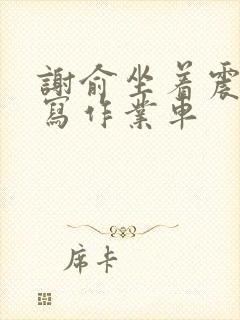 謝俞坐着震
寫作業車
席卡